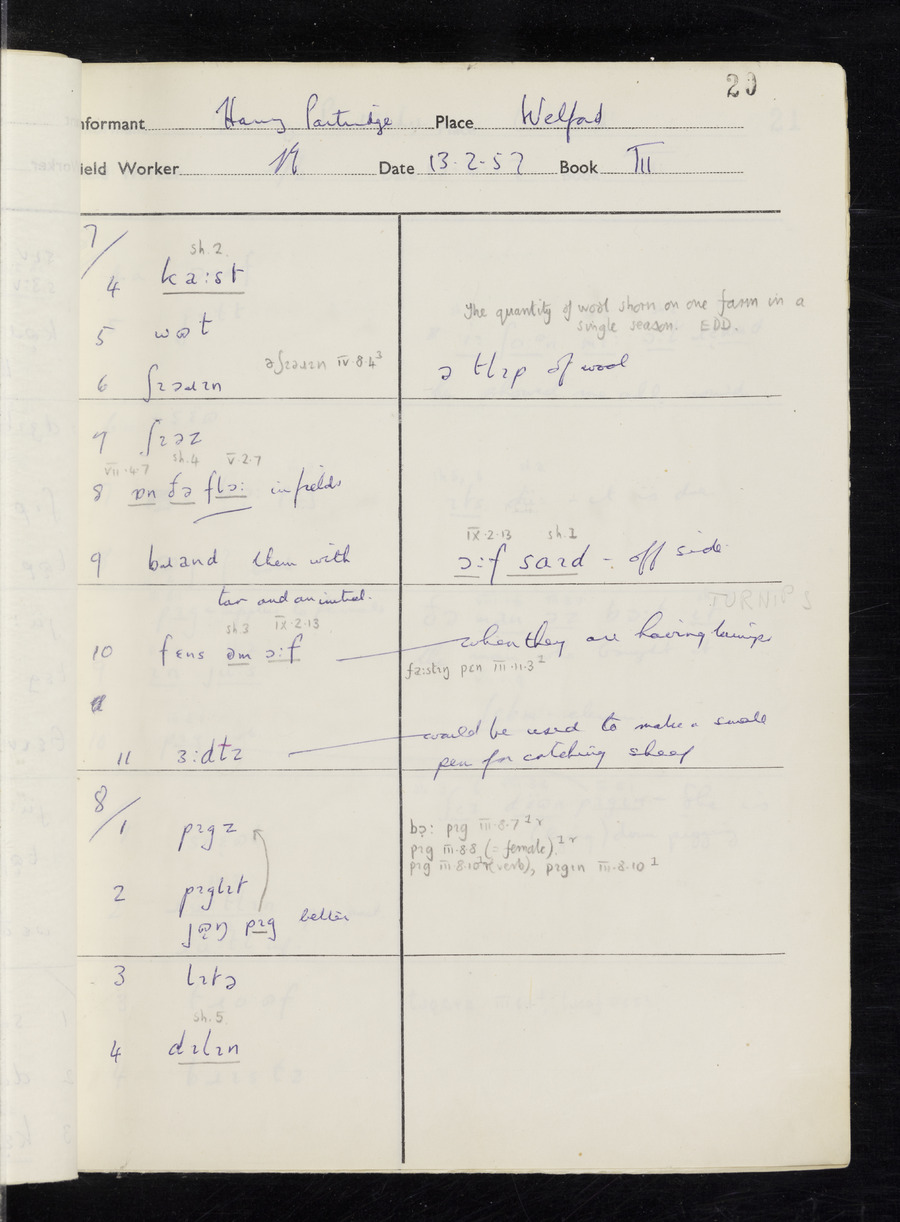 29
nformant Harry Partridge Place Welford
ield Worker Date 13·2·57 Book III
7/
sh. 2.
4 ka:st
The quantity of wool shorn on one farm in a
single season. EDD.
5 wɷt
əʃɪəɹɪn IV·8·4³
6 ʃɪəɹɪn
ə tlɪp of wool
7 ʃɪəz
VII·4·7 sh.4 V·2·7
8 ɒn ðə flɔ: in fields
IX·2·13 sh.1
9 bɹand them with
ɔ:f saɪd = off side
tar and an initial.
sh.3 IX·2·13
10 fɛns əm ɔ:f
when they are having turnips
TURNIPS
fa:stɪŋ pɛn III·11·3¹
11 ɜ:dtz
would be used to make a small
pen for catching sheep
8/
1 pɪgz
bɔ: pɪg III·8·7¹ʳ
pɪg III·8·8 (= female).¹ʳ
pɪg III·8·10ʳ(verb), pɪgɪn III·8·10¹
2 pɪglɪt
jɷŋ pɪg better
3 lɪtə
sh. 5.
4 dɪlɪn